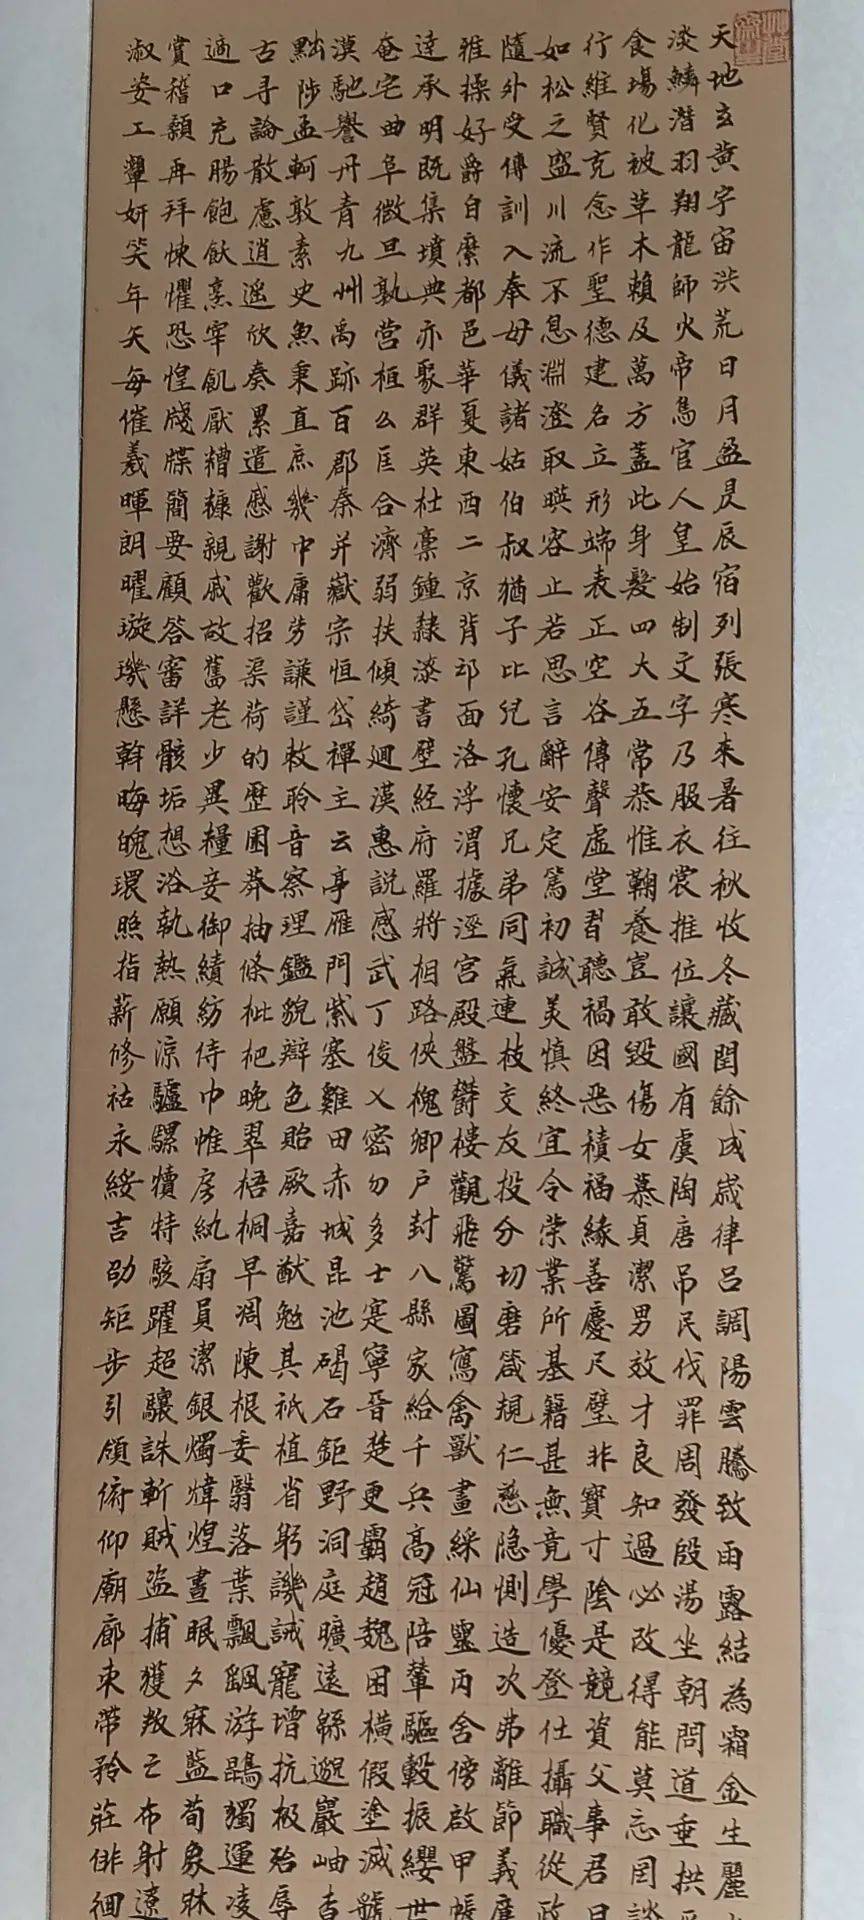 天地玄黄宇宙洪荒日月盈昃辰宿列張寒来暑往秋收冬藏閏餘成歲律吕調陽雲騰致雨露結為霜金生麗
淡鱗潛羽翔龍師火帝鳥官人皇始制文字乃服衣裳推位讓國有虞陶唐吊民伐罪周發殷湯坐朝問道垂拱平
食場化被草木賴及萬方蓋此身髮四大五常恭惟鞠養豈敢毀傷女慕貞潔男效才良知過必改得能莫忘罔談
行維賢克念作聖德建名立形端表正空谷傳聲虛堂習聽禍因惡積福緣善慶尺璧非寶寸陰是競資父事君曰
如松之盛川流不息淵澄取暎容止若思言辭安定篤初誠美慎終宜令榮業所基籍甚無竟學優登仕攝職從政
隨外受傅訓入奉母儀諸姑伯叔猶子比兒孔懷兄弟同氣連枝交友投分切磨箴規仁慈隱惻造次弗離節義廉
雅操好爵自縻都邑華夏東西二京背邙面洛浮渭據涇宮殿盤鬱樓觀飛驚圖寫禽獸畫綵仙靈丙舍傍啟甲帳
達承明既集墳典亦聚群英杜稾鍾隸漆書壁經府羅將相路俠槐卿户封八縣家給千兵高冠陪輦驅轂振纓世
奄宅曲阜微旦孰營桓公匡合濟弱扶傾綺迴漢惠説感武丁俊乂密勿多士寔寧晉楚更霸趙魏困橫假塗滅虢
漠馳譽丹青九州禹跡百郡秦并嶽宗恒岱禪主云亭雁門紫塞雞田赤城昆池碣石鉅野洞庭曠遠緜邈巖岫杳
黜陟孟軻敦素史魚秉直庶幾中庸勞謙謹敕聆音察理鑑貌辯色貽厥嘉猷勉其祗植省躬譏誡寵增抗極殆辱
古尋論散慮逍遥欣奏累遣感謝歡招渠荷的歷園莽抽條枇杷晚翠梧桐早凋陳根委翳落葉飄颻游鵾獨運凌
適口充腸飽飫烹宰飢厭糟糠親戚故舊老少異糧妾御績紡侍巾帷房紈扇員潔銀燭煒煌晝眠夕寐藍荀象牀
賞稽顙再拜悚懼恐惶牋牒簡要顧答審詳骸垢想浴執熱願涼驢騾犢特駭躍超驤誅斬賊盜捕獲叛亡布射遼
淑姿工顰妍笑年矢每催羲暉朗曜璇璣懸斡晦魄環照指薪修祜永綏吉劭矩步引領俯仰廟廊束帶矜莊俳徊